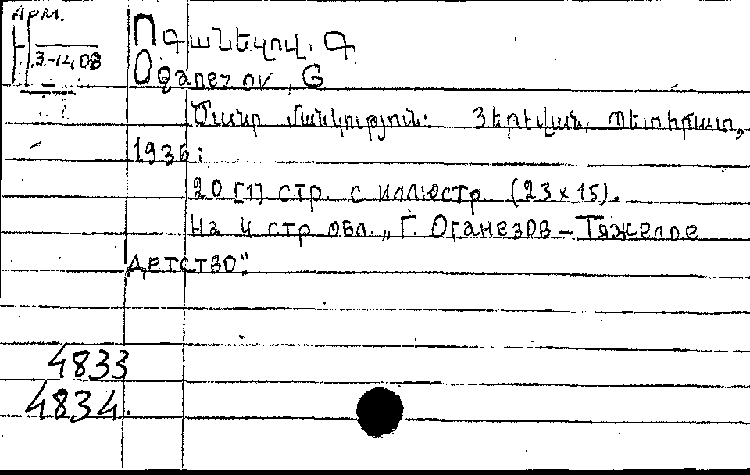 АРМ.
3-1408
Օգանեզով. Գ
Oganezov, G
Ծանր մանկություն: Յերևան, Պետհրատ,
1936:
20 [1] стр. с иллюстр. (23 x 15).
На 4 стр обл. „Г. Оганезов – Тяжелое
детство“
4833
4834.